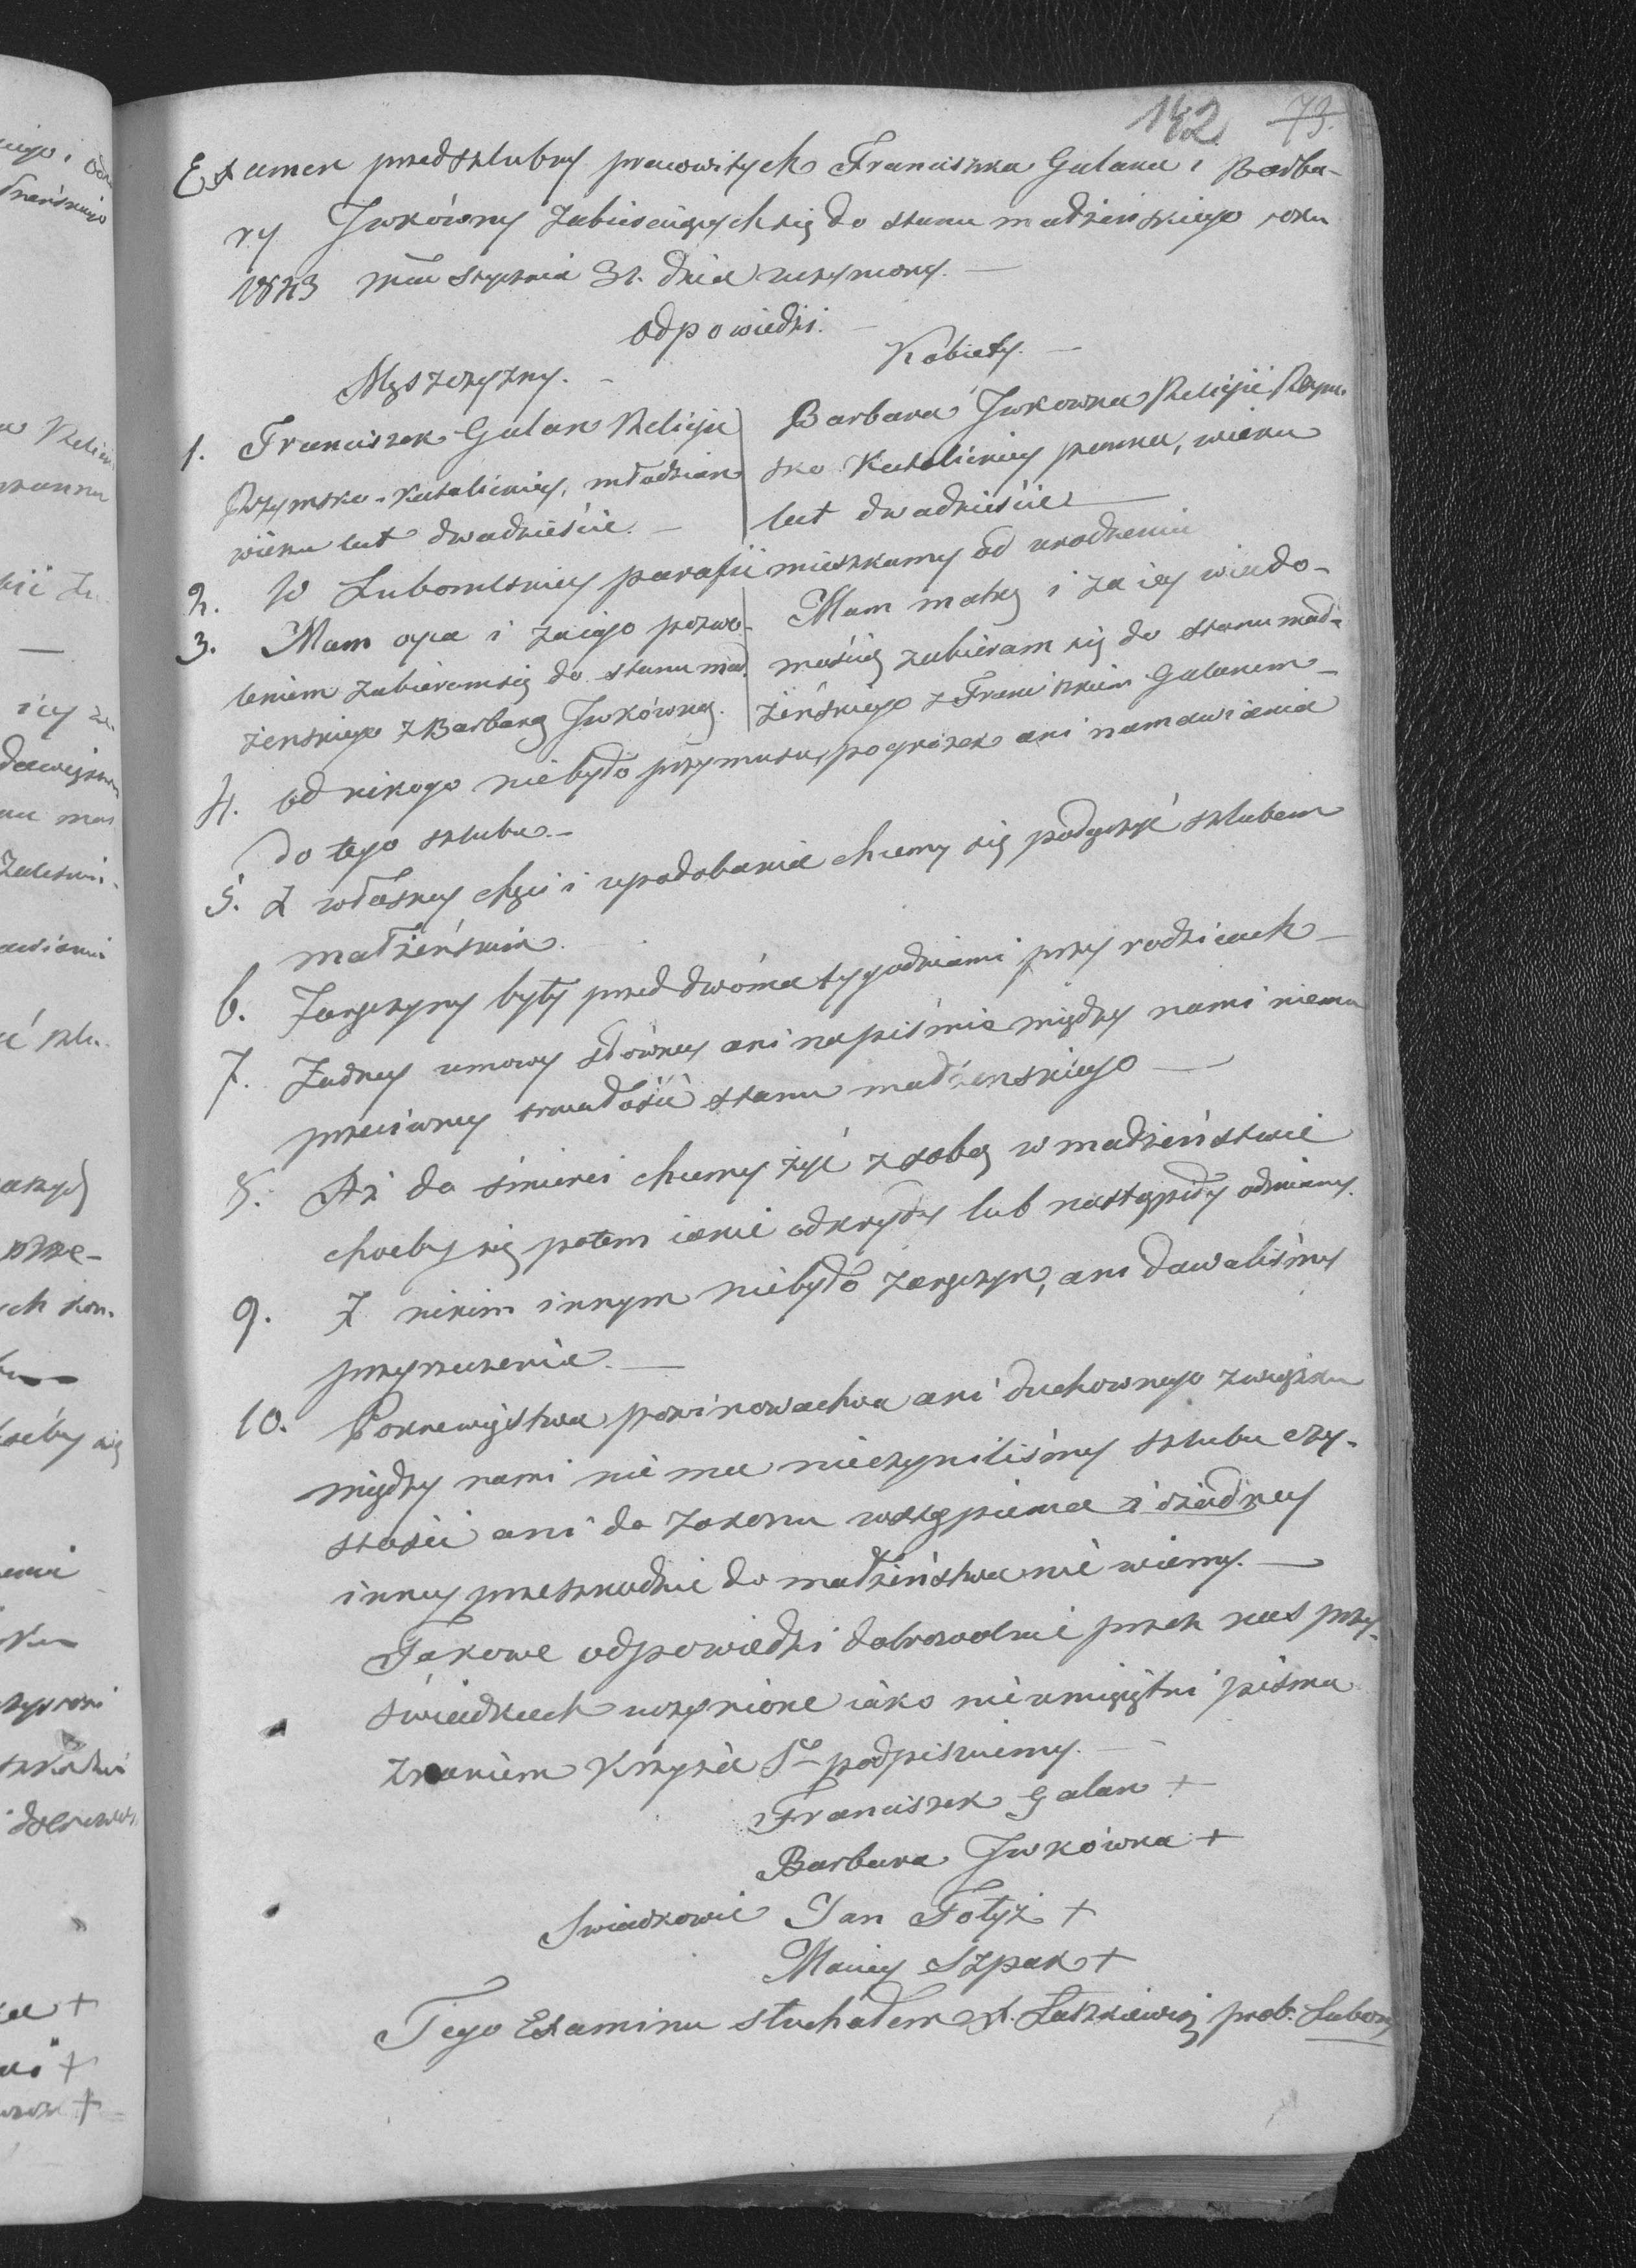 142 73.
Examen przedszlubny pracowitych Franciszka Galana i Barba-
ry Iwkówny zabieraiących się do stanu małżeńskiego roku
1823 mca Stycznia 31. dnia uczyniony. —
odpowiedzi. —
Męszczyzny. — Kobiety. —
1. Franciszek Galan Religii Barbara Iwkowna Religii Rzym.
Rzymsko-Katolickiey, młodzian sko Katolickiey panna, wieku
wieku lat dwadzieście. — lat dwadzieście —
2. W Lubomlskiey parafii mieszkamy od urodzenia
3. Mam oyca i za iego pozwo- Mam matkę i za iey wiado-
leniem zabieram się do stanu mał. mością zabieram się do stanu mał-
żenskiego z Barbarą Iwkówną. żeńskiego z Franciszkiem Galanem —
4. od nikogo niebyło przymusu, pogrożek ani namawiania
do tego szlubu. —
5. Z własney chęci i upodobania chcemy się połączyć szlubem
małżeńskim.
6. Zaręczyny były przed dwóma tygodniami przy rodzicach —
7. Żadney umowy słówney ani napiśmie między nami niema
przeciwney trwałości stanu małżenskiego —
8. Aż do śmierci chcemy żyć z sobą w małżeństwie
choćby się potem iakie odkryły lub nastąpiły odmiany.
9. Z nikim innym niebyło zaręczyn, ani dawaliśmy
przyrzeczenia. —
10. Pokrewięstwa powinowactwa ani duchownego związku
między nami niema nieczyniliśmy szlubu czy-
stości ani do zakonu wstąpienia i o żadney
inney przeszkodzie do małżeństwa nie wiemy. —
Takowe odpowiedzi dobrowolnie przez nas przy
świadkach uczynione iako nieumieiętni pisma
znakiem Krzyża S° podpisuiemy. —
Franciszek Galan +
Barbara Iwkówna +
Swiadkowie Jan Fotyż +
Maciey Szpak +
Tego Examinu słuchałem X. Laszkiewicz prob: Lubom